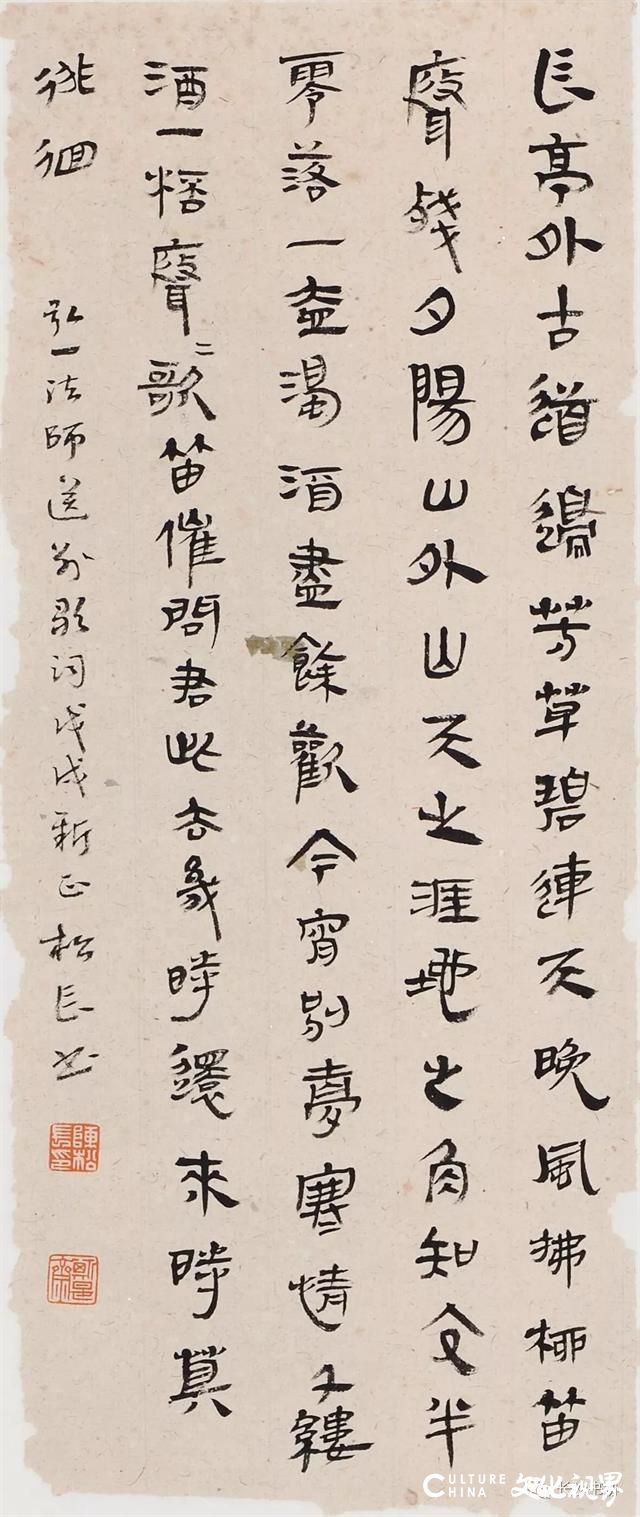 長亭外古道邊芳草碧連天晚風拂柳笛
聲殘夕陽山外山天之涯地之角知交半
零落一壺濁酒盡餘歡今宵別夢寒情千縷
酒一桮聲〻歌笛催問君此去幾時還來時莫
徘徊
弘一法師送別歌詞戊戌新正松長書
陳松長印
CULTURE CHINA 文化视界